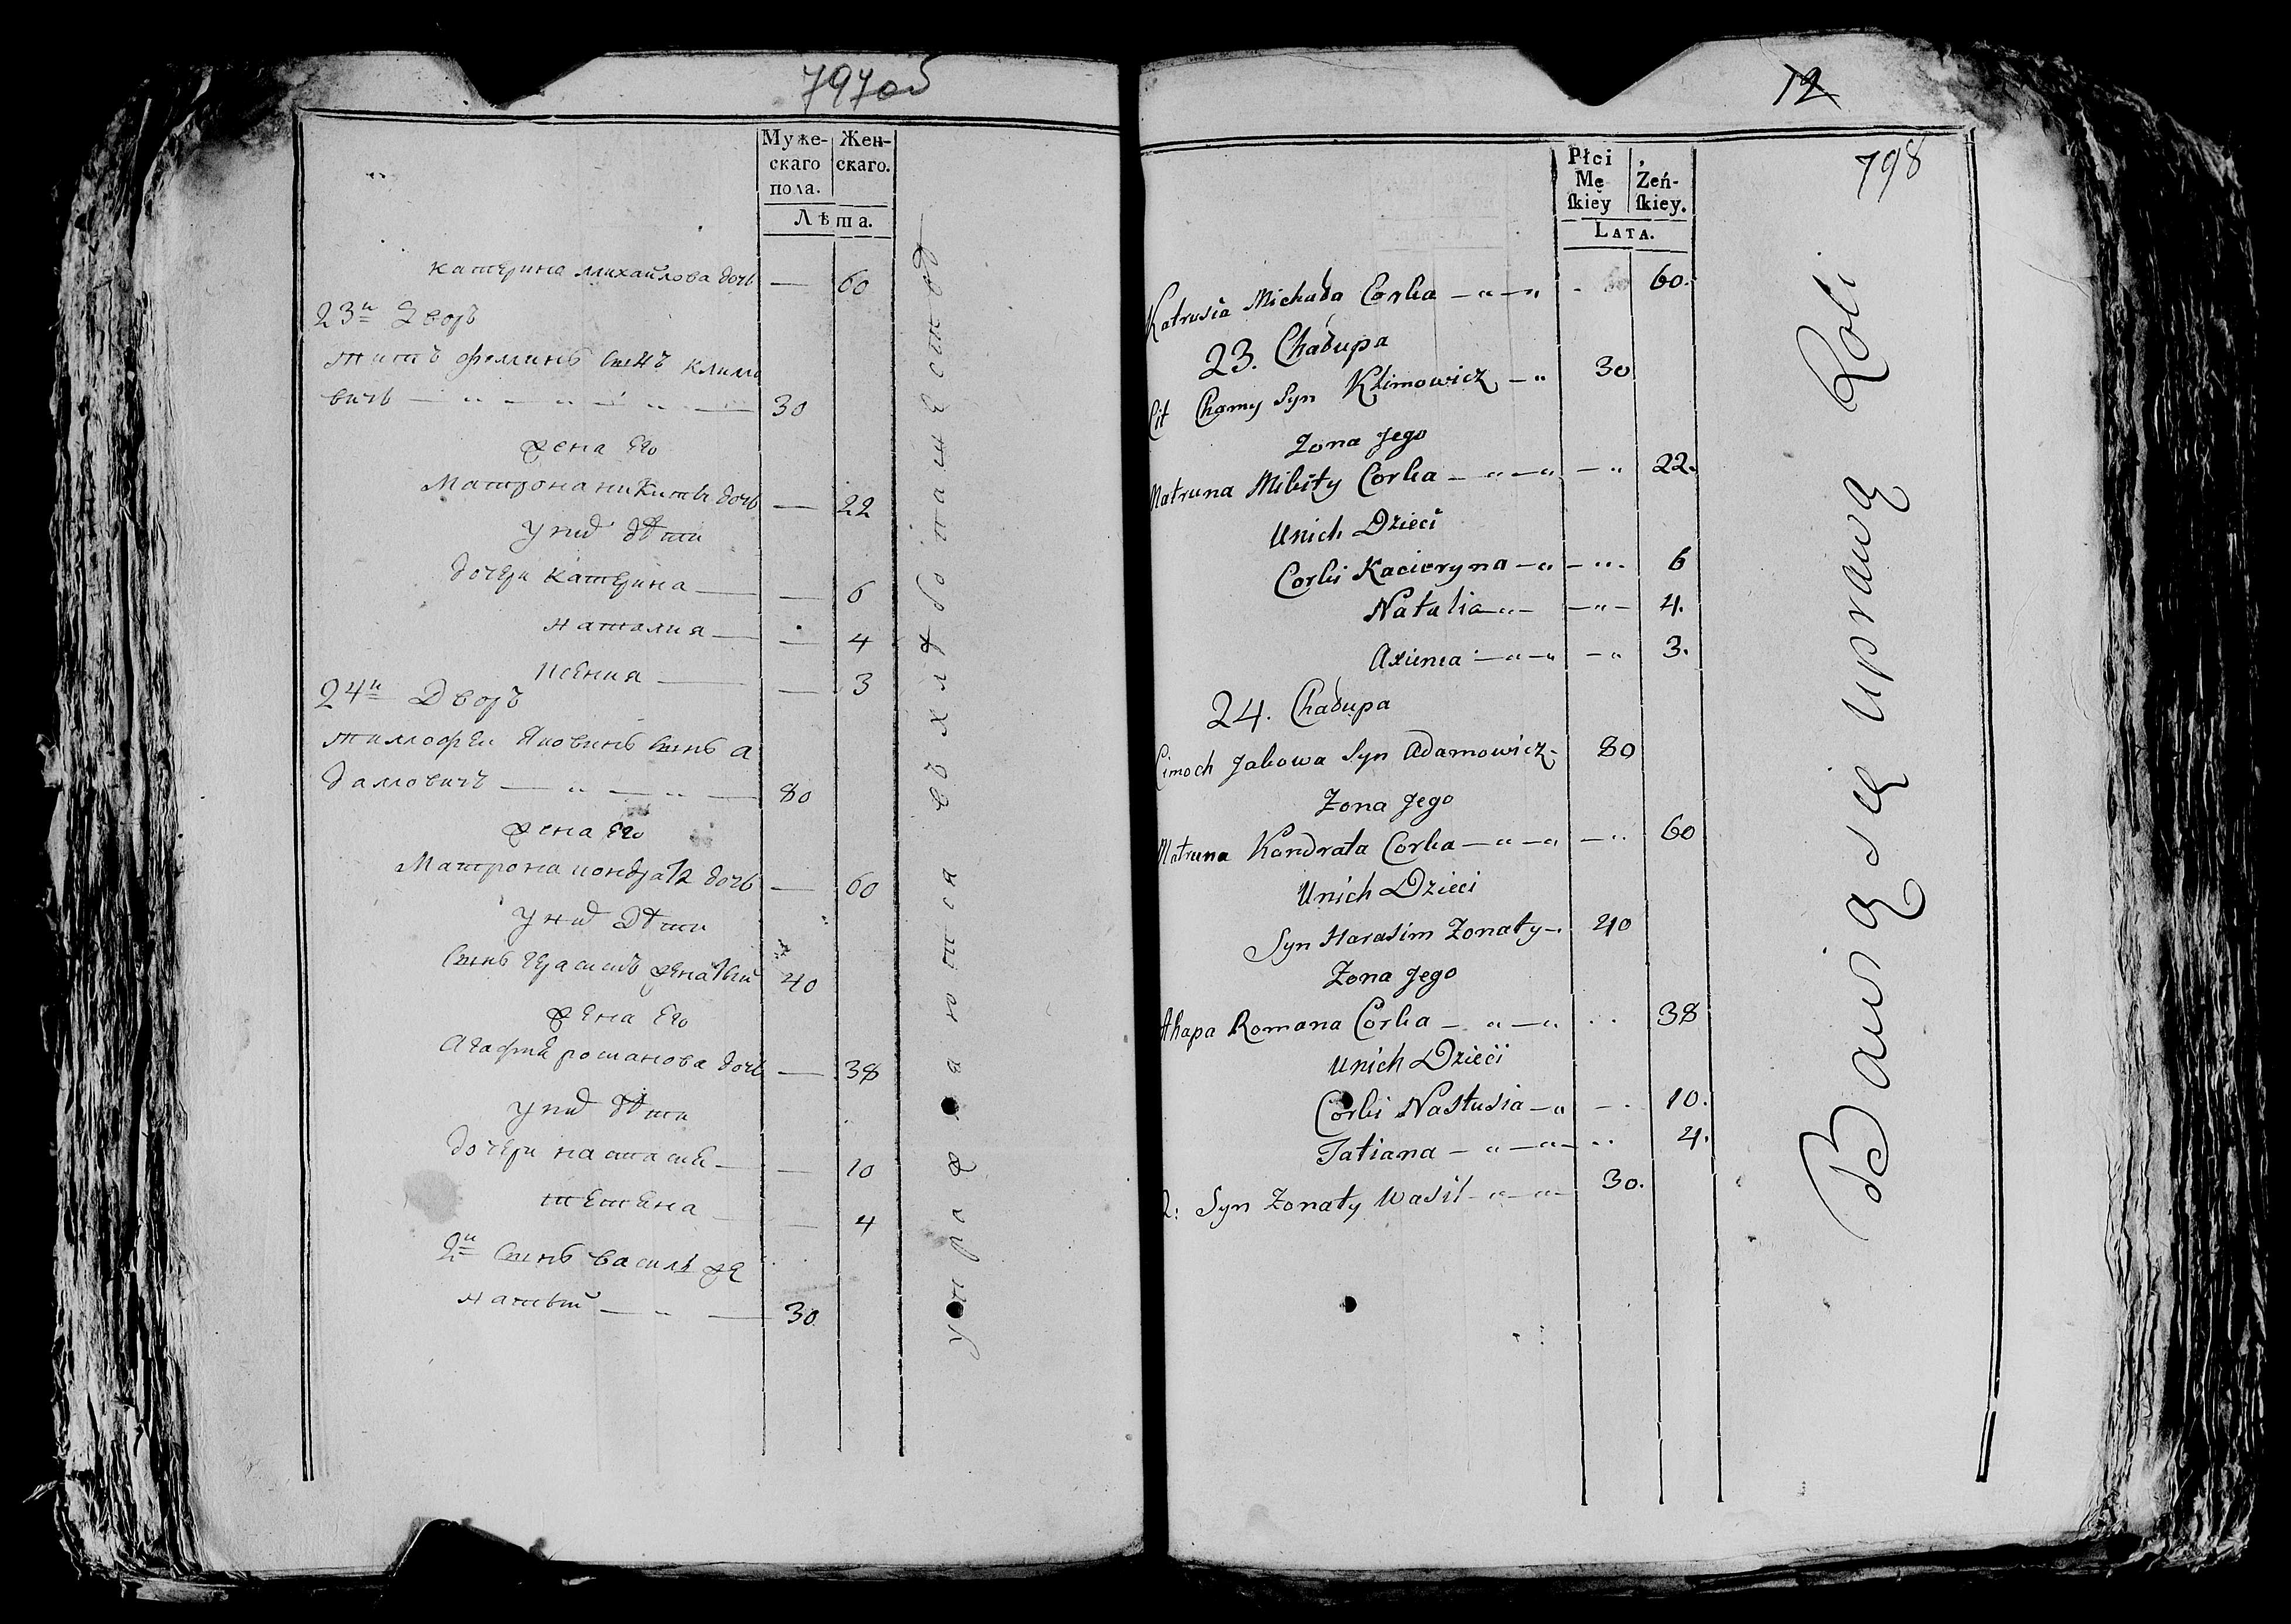 797об
Муже-
скаго
пола.
Жен-
скаго.
Лѣта.
катерина михайлова дочь — 60
23й Дворъ
титъ фоминъ сынъ климо
вичь — 30
жена Его
Матрона никиты дочь — 22
у них дѣти
дочери катерина — 6
наталия — 4
ксения — 3
24й Дворъ
тимофеи яковинъ сынъ а
дамовичъ — 80
жена Его
Матрона кондрата дочь — 60
у них Дѣти
сынъ герасимъ женатый 40
жена Его
Агафия романова дочь — 38
у них дѣти
дочери настасия — 10
тетяна — 4
2й сынъ василь же
натый — 30
упражняются въ хлѣбопашественод
12
798
Płci
Mę
skiey
Zeń-
skiey.
LATA.
Katrusia Michała Corka — 60.
23. Chałupa
Cit Chomy Syn Klimowicz — 30
Zona Jego
Matruna Mikity Corka — 22.
Unich Dzieci
Corki Kacieryna — 6
Natalia — 4.
Axienia — 3.
24. Chałupa
Cimoch Jakowa Syn Adamowicz 80
Zona Jego
Matruna Kondrata Corka — 60
Unich Dzieci
Syn Harasim Zonaty 40
Zona Jego
Ahapa Romana Corka — 38
Unich Dzieci
Corki Nastusia — 10.
Tatiana — 4.
2: Syn Zonaty Wasil — 30.
Bawią się uprawą Roli